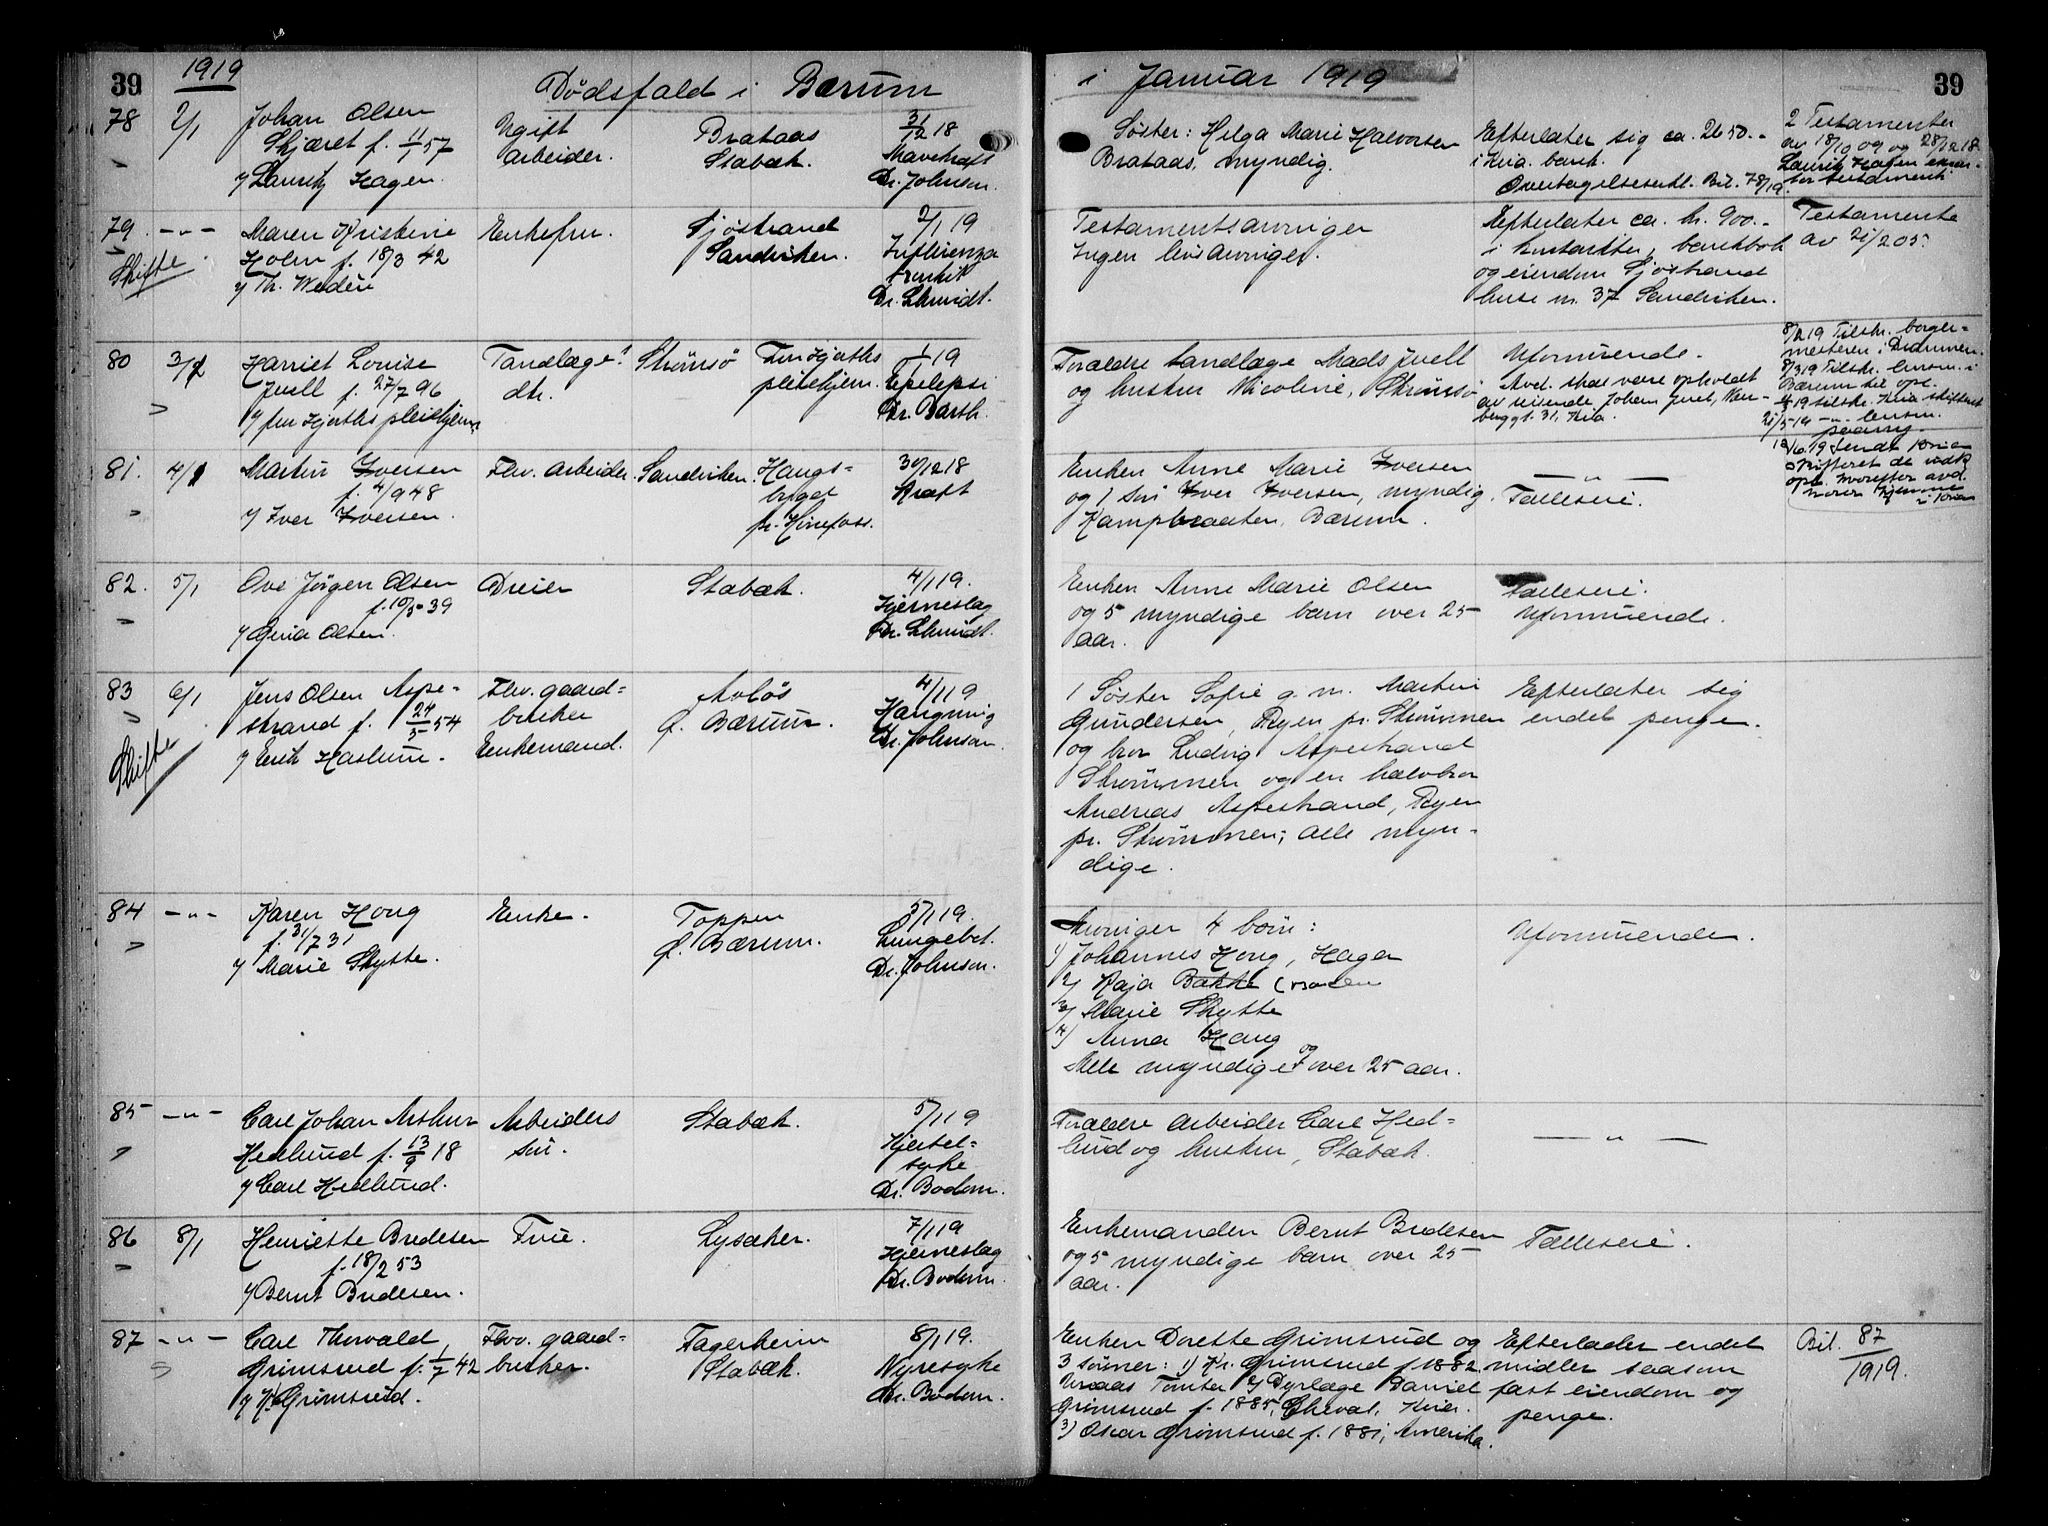 39
1919
Dødsfald i Bærum
i Januar 1919
39
78
2/1
Johan Olsen
Skjæret f. 11/1 57
v/ Lauritz Hagen.
Ugift
arbeider.
Brataas
Stabæk.
31/12 18
Mavekræft
Dr. Johnson.
Søster: Helga Marie Halvorsen
Brataas, myndig.
Efterlater sig ca. 2650.-
i Kra. bank.
Overtagelseserkl. Bil. 78/19.
2 Testamenter
av 18/10 09 og 28/12 18
Lauritz Hagen
testament
79.
-"-
Skifte
Maren Kristine
Holm f. 18/3 42
v/ Th. Wedén
Enkefru.
Sjøstrand
Sandviken.
2/1 19
Influenza
bronkit
Dr. Schmidt.
Testamentsarvinger
Ingen livsarvinger.
Efterlater ca. kr. 900.-
i kontanter, bankbok
og eiendom Sjøstrand
hus n. 37 Sandviken.
Testamente
av 21/2 05.
80
3/1
Harriet Louise
Juell f. 27/7 96
v/ fru Hjorths pleiehjem.
Tandlæge-
dtr.
Strømsø
Fru Hjorths
pleiehjem.
1/1 19
Epilepsi
Dr. Barth.
Forældre tandlæge Mads Juell
og hustru Nicoline, Strømsø
Uformuende.
Avd. skal være opholdt
av reisende Johan Juel,
berggt. 31, Kra.
8/2 19 Tilskr. borger-
mesteren i Drammen.
8/3 19 Tilskr. lensm. i
Bærum til opl.
19 tilskr. Kra skifteret
21/5 19 -"- lensm.
paany.
12/6 19 sendt
skifteret de indk.
opl. hvorefter avd.
hører hjemme
81.
4/1
Martin Iversen
f. 4/9 48
v/ Iver Iversen.
Fhv. arbeider.
Sandviken.
Haugs-
bygd
pr. Hønefoss.
30/12 18
Kræft
Enken Anne Marie Iversen
og 1 søn Iver Iversen, myndig.
Kampbraaten, Bærum.
-"-
Fælleseie.
82.
5/1
Ove Jørgen Olsen
f. 10/5 39
v/ Gina Olsen.
Dreier
Stabæk.
4/1 19.
Hjerneslag
Dr. Schmidt.
Enken Anne Marie Olsen
og 5 myndige barn over 25
aar.
Fælleseie.
Uformuende.
83
6/1
Skifte
Jens Olsen Aspe-
strand f. 24/5 54
v/ Erik Haslum.
Fhv. gaard-
bruker
Enkemand.
Avløs
Ø. Bærum.
4/1 19
Hængning
Dr. Johnson.
1 Søster Sofie g. m. Martin
Gundersen, Ryen pr. Strømmen
og bror Ludvig Aspestrand
Strømmen og en halvbror
Andreas Aspestrand, Ryen
pr. Strømmen; alle myn-
dige.
Efterlater sig
endel penge.
84
-"-
Karen Houg
f. 31/7 31
v/ Marie Skytte.
Enke.
Toppen
Ø. Bærum.
5/1 19.
Lungebet.
Dr. Johnson.
Arvinger 4 børn:
1) Johannes Houg, Hagen
2) Kaja Bakke
3) Marie Skytte
4) Anna Haug
Alle myndige og over 25 aar.
Uformuende.
85
-"-
Carl Johan Arthur
Hedlund f. 13/9 18
v/ Carl Hedlund.
Arbeiders
søn.
Stabæk.
5/1 19
Hjertel-
syke
Dr. Bodom.
Forældre arbeider Carl Hed-
lund og hustru, Stabæk.
-"-
86
8/1
Henriette Bredesen
f. 18/2 53
v/ Bernt Bredesen.
Frue.
Lysaker.
7/1 19
Hjerneslag
Dr. Bodom.
Enkemanden Bernt Bredesen
og 5 myndige barn over 25
aar.
Fælleseie.
87
-"-
Carl Thorvald
Grimsrud f. 1/7 42
v/ Kr. Grimsrud.
Fhv. gaard-
bruker.
Fagerheim
Stabæk.
8/1 19.
Nyresyke
Dr. Bodom.
Enken Dorette Grimsrud og
3 sønner: 1) Kr. Grimsrud f. 1882
Tomter 2) Dyrlæge Daniel
Grimsrud f. 1885, Cheval, Kria.
3) Oscar Grimsrud f. 1881, Amerika.
Efterlader endel
midler saasom
fast eiendom og
penge.
Bil. 87/1919.